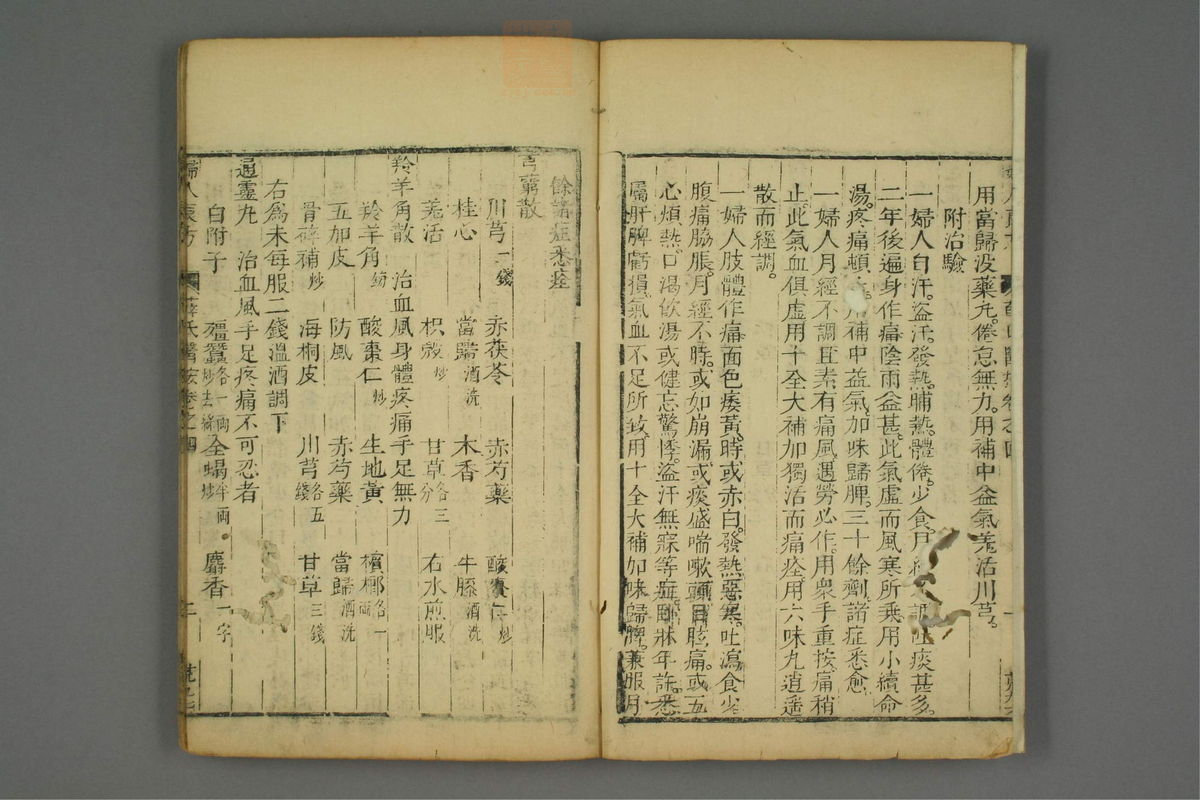 用當歸没藥丸。倦怠無力。用補中益氣羌活川芎。
附治驗
一婦人自汗。盜汗。發熱。晡熱。體倦。少食。月經不調。吐痰甚多。
二年後遍身作痛。陰雨益甚。此氣虛而風寒所乘。用小續命
湯。疼痛頓。用補中益氣。加味歸脾。三十餘劑。諸症悉愈。
一婦人月經不調。且素有痛風。遇勞必作。用衆手重按。痛稍
止。此氣血俱虛。用十全大補加獨活而痛痊。用六味丸逍遥
散而經調。
一婦人肢體作痛。面色痿黃。時或赤白。發熱惡寒。吐瀉食少。
腹痛脇脹。月經不時。或如崩漏。或痰盛喘嗽。頭目眩痛。或五
心煩熱。口渴飲湯。或健忘驚悸。盜汗無寐等症。年許。悉
屬肝脾虧損。氣血不足所致。用十全大補加味歸脾。兼服月
餘諸症悉痊
芎藭散
川芎一錢 赤茯苓 赤芍藥 酸棗仁炒
桂心 當歸酒洗 木香 牛膝酒洗
羌活 枳殼炒 甘草各三分 右水煎服
羚羊角散 治血風身體疼痛手足無力
羚羊角紡 酸棗仁炒 生地黃 檳榔各一兩
五加皮 防風 赤芍藥 當歸酒洗
骨碎補炒 海桐皮 川芎各五錢 甘草三錢
右爲末每服二錢溫酒調下
通靈丸 治血風手足疼痛不可忍者
白附子 殭蠶各一兩炒去絲 全蝎半兩炒 麝香一字
婦人良方 薛氏醫按卷之四 二